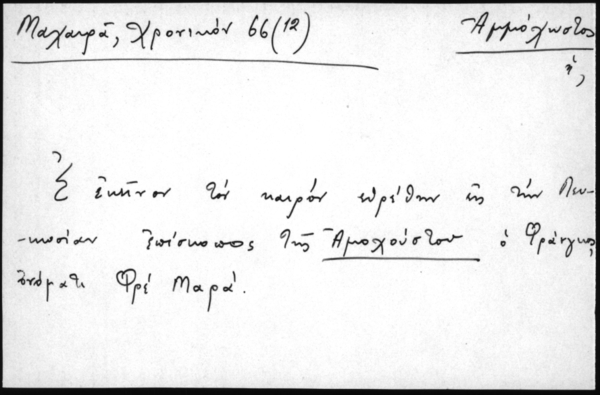 Μαχαιρᾶ, Χρονικόν 66(12)
Ἀμμόχωστος
ἡ,
Σ ἐκεῖνον τὸν καιρὸν εὑρέθην εἰς τὴν Λευ-
-κωσίαν ἐπίσκοπος τῆς Ἀμοχούστου ὁ Φράγκος,
ὀνόματι Φρέ Μαρά.